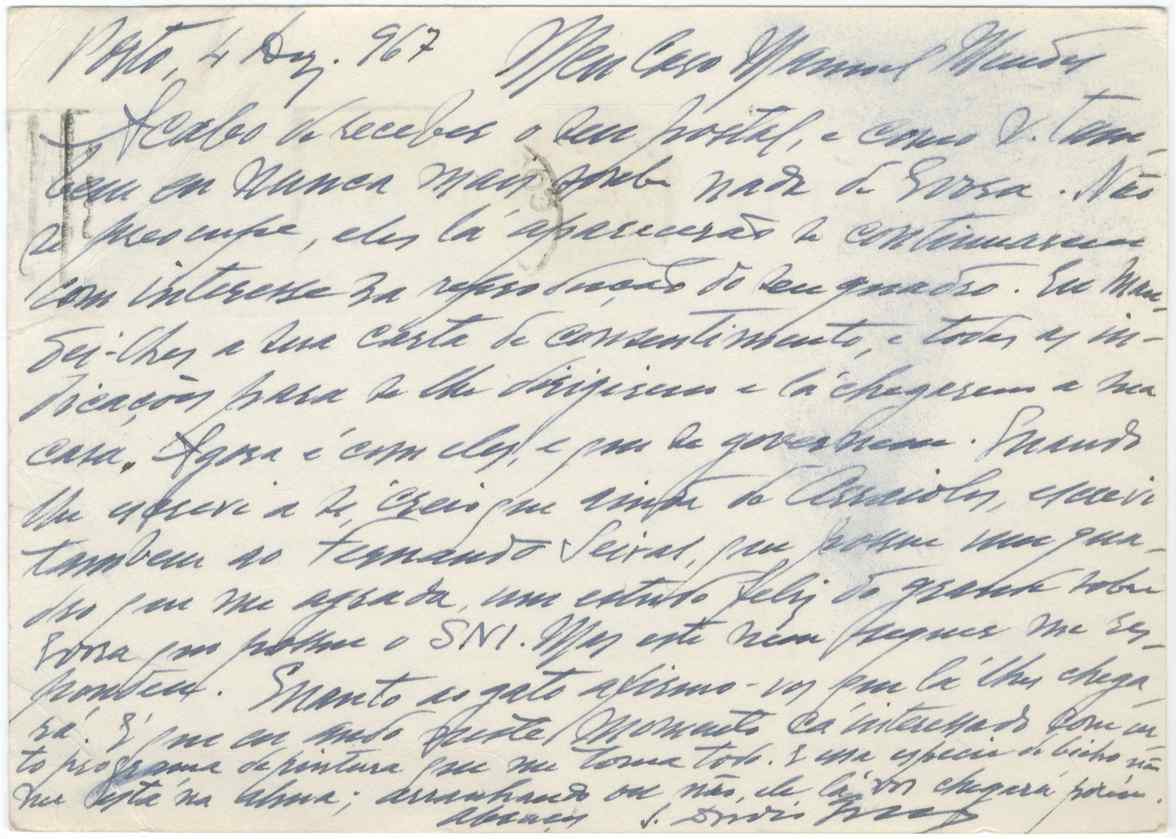 Porto, 4 Dez. 967 Meu Caro Manuel Mendes
Acabo de receber o seu postal, e como V. tam-
bem eu nunca mais soube nada de Evora. Não
se preocupe, eles lá aparecerão se continuarem
com interesse na reprodução do seu quadro. Eu man-
dei-lhes a sua carta de consentimento, e todas as in-
dicações para se lhe dirigirem e lá chegarem a sua
casa. Agora é com eles, e que se governem. Quando
lhe escrevi a si, creio que ainda de Arraiolos, escrevi
tambem ao Fernando Seixas, que possue um qua-
dro que me agrada, um estudo feliz do grande sobre
Evora que possue o SNI. Mas este nem sequer me res-
pondeu. Quanto ao gato afirmo-vos que lá lhes chega
rá. É que eu ando neste momento cá interessado com um
to programa de pintura que me toma todo. E essa espécie de bicho não
me está na alma; arranhando ou não, ele lá vos chegará porém.
Abraços